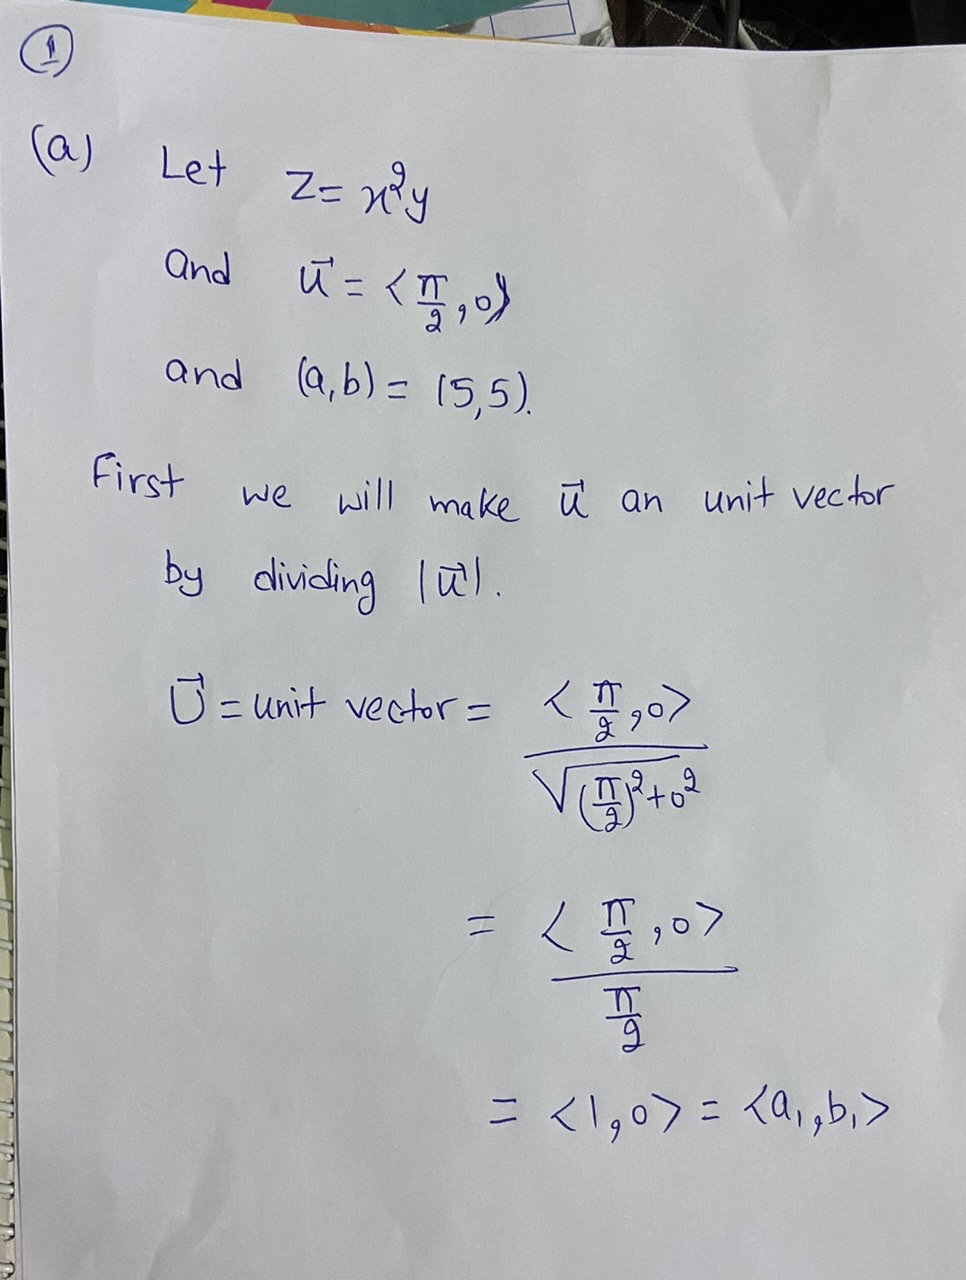 ①
(a) Let z = x²y
and u⃗ = <π/2, 0>
and (a,b) = (5,5).
First we will make u⃗ an unit vector
by dividing |u⃗|.
U⃗ = unit vector = <π/2, 0> / √((π/2)² + 0²)
= <π/2, 0> / (π/2)
= <1, 0> = <a₁, b₁>